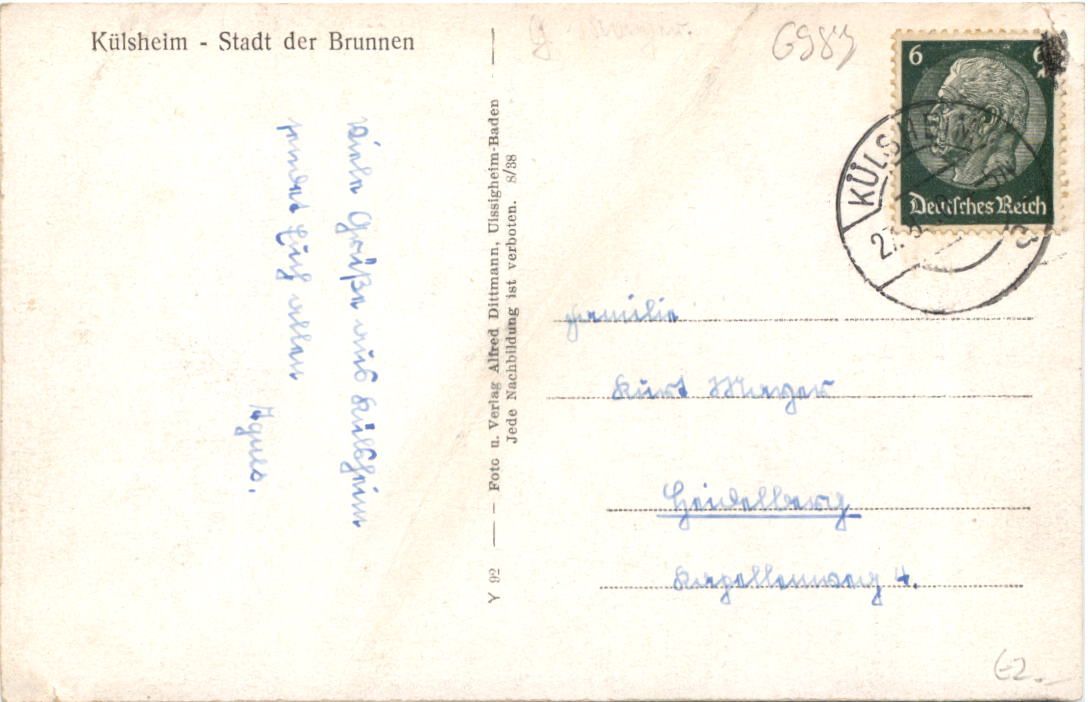 Külsheim - Stadt der Brunnen
Viele Grüße aus Külsheim
sendet Euch allen
Agnes.
Y 92 — Foto u. Verlag Alfred Dittmann, Uissigheim-Baden
Jede Nachbildung ist verboten. 8/38
6987
6 6
Deutsches Reich
KÜLSHEIM
27.
Familie
Kurt Meyer
Heidelberg
Kapellenweg 4.